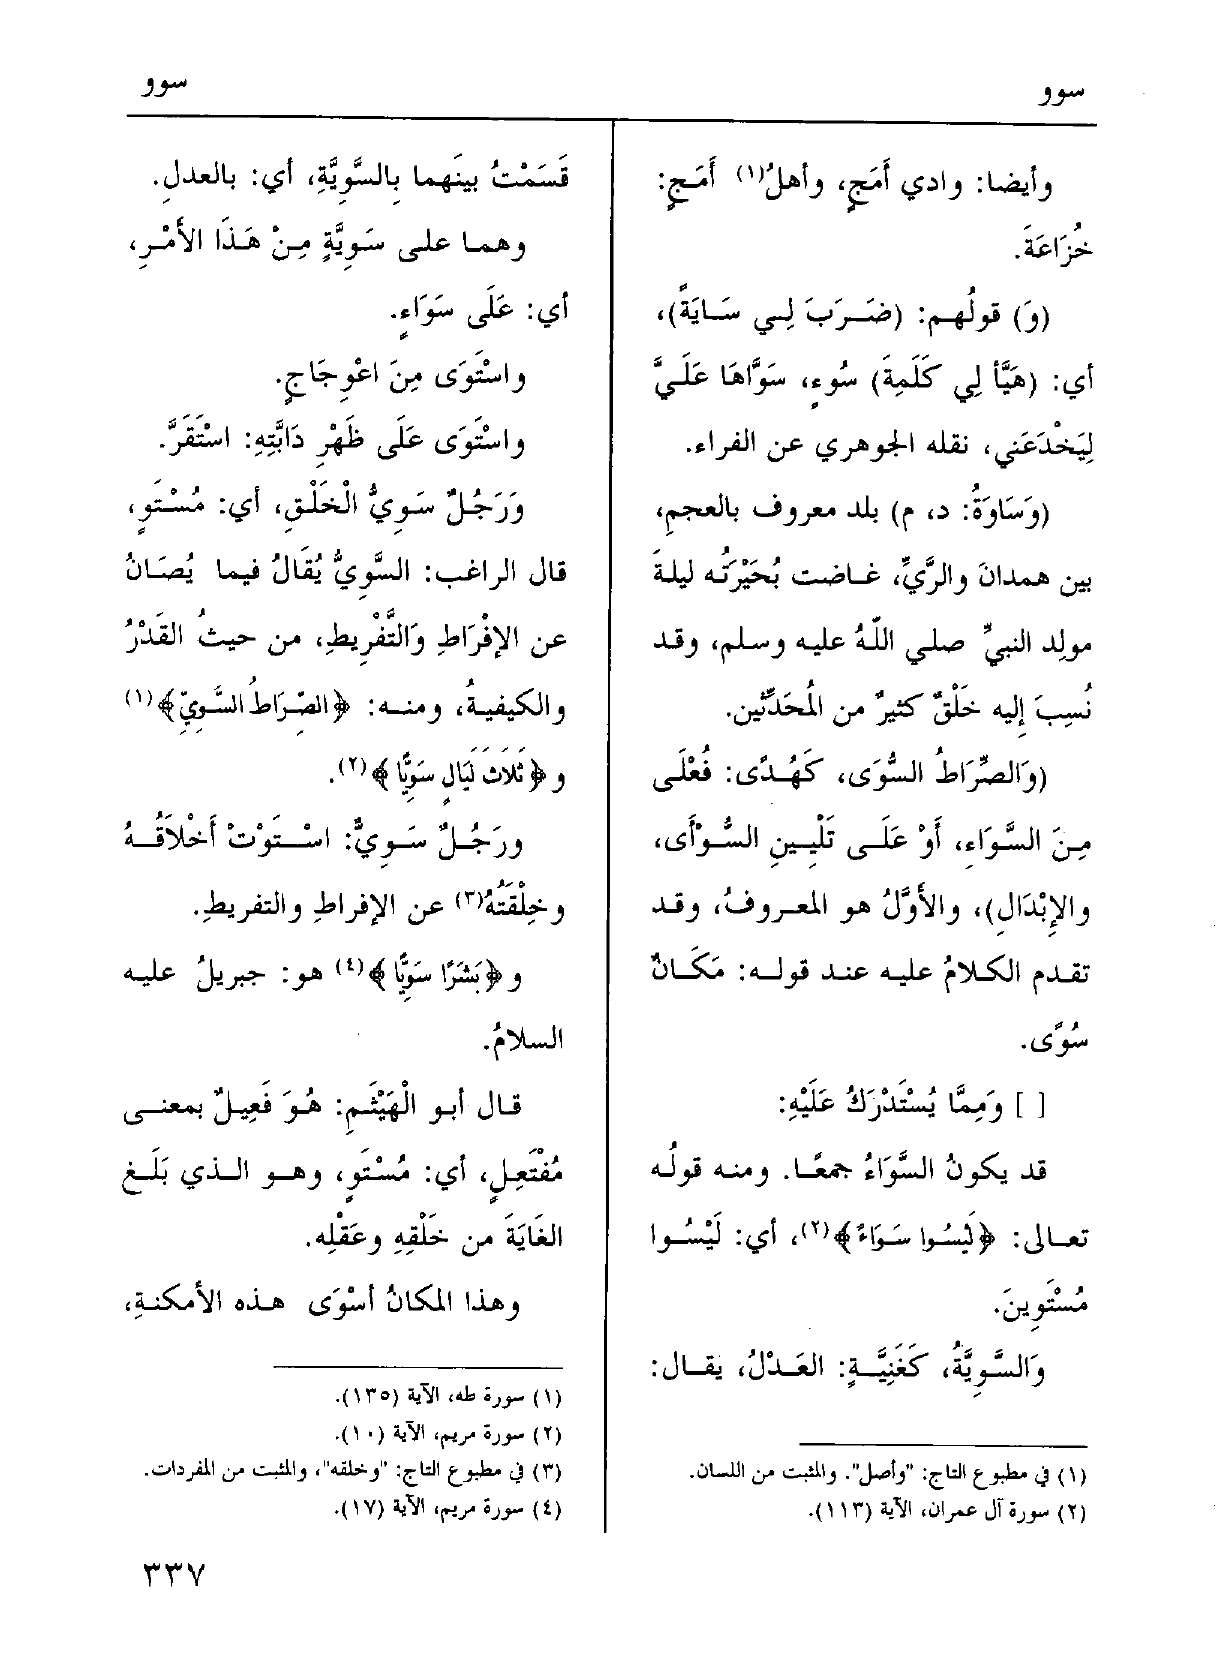 سوو
سوو
وأيضا: وادي أَمَجٍ، وأهلُ(١) أَمَجٍ:
خُزَاعَةَ.
(وَ) قولُهم: (ضَرَبَ لِي سَايَةً)،
أي: (هَيَّأَ لِي كَلَمِةَ) سُوءٍ، سَوَّاهَا عَلَيَّ
لِيَخْدَعَني، نقله الجوهري عن الفراء.
(وَسَاوَةُ: د، م) بلد معروف بالعجمِ،
بين همدانَ والرَّيِّ، غاضت بُحَيْرَتُه ليلةَ
مولِد النبيِّ صلي اللّهُ عليه وسلم، وقد
نُسِبَ إليه خَلْقٌ كثيرٌ من المُحَدِّثين.
(وَالصِّرَاطُ السُّوَى، كَهُدًى: فُعْلَى
مِنَ السَّوَاءِ، أَوْ عَلَى تَلْيِينِ السُّوْأَى،
والإِبْدَالِ)، والأَوَّلُ هو المعروفُ، وقد
تقدم الكلامُ عليه عند قوله: مَكَانٌ
سُوًى.
[ ] وَمِمَّا يُسْتَدْرَكُ عَلَيْهِ:
قد يكونُ السَّوَاءُ جمعًا. ومنه قولُه
تعالى: ﴿لَيْسُوا سَوَاءً﴾(٢)، أي: لَيْسُوا
مُسْتَوِينَ.
وَالسَّوِيَّةُ، كَغَنِيَّةٍ: العَدْلُ، يقال:
(١) في مطبوع التاج: "وأصل". والمثبت من اللسان.
(٢) سورة آل عمران، الآية (١١٣).
قَسَمْتُ بينَهما بِالسَّوِيَّةِ، أي: بالعدلِ.
وهما على سَوِيَّةٍ مِنْ هَذَا الأَمْرِ،
أي: عَلَى سَوَاءٍ.
واسْتَوَى مِنَ اعْوِجَاجٍ.
واسْتَوَى عَلَى ظَهْرِ دَابَّتِهِ: اسْتَقَرَّ.
وَرَجُلٌ سَوِيُّ الْخَلْقِ، أي: مُسْتَوٍ،
قال الراغب: السَّوِيُّ يُقَالُ فيما يُصَانُ
عن الإِفْرَاطِ وَالتَّفْرِيطِ، من حيثُ القَدْرُ
والكيفيةُ، ومنه: ﴿الصِّرَاطُ السَّوِيّ﴾(١)
و﴿ثَلَاثَ لَيَالٍ سَوِيًّا﴾(٢).
ورَجُلٌ سَوِيٌّ: اسْتَوَتْ أَخْلَاقُهُ
وخِلْقَتُهُ(٣) عن الإفراطِ والتفريطِ.
و﴿بَشَرًا سَوِيًّا﴾(٤) هو: جبريلُ عليه
السلامُ.
قال أبو الْهَيْثَمِ: هُوَ فَعِيلٌ بمعنى
مُفْتَعِلٍ، أي: مُسْتَوٍ، وهو الذي بَلَغ
الغَايَةَ من خَلْقِهِ وعَقْلِه.
وهذا المكانُ أسْوَى هذه الأمكنةِ،
(١) سورة طه، الآية (١٣٥).
(٢) سورة مريم، الآية (١٠).
(٣) في مطبوع التاج: "وخلقه"، والمثبت من المفردات.
(٤) سورة مريم، الآية (١٧).
٣٣٧